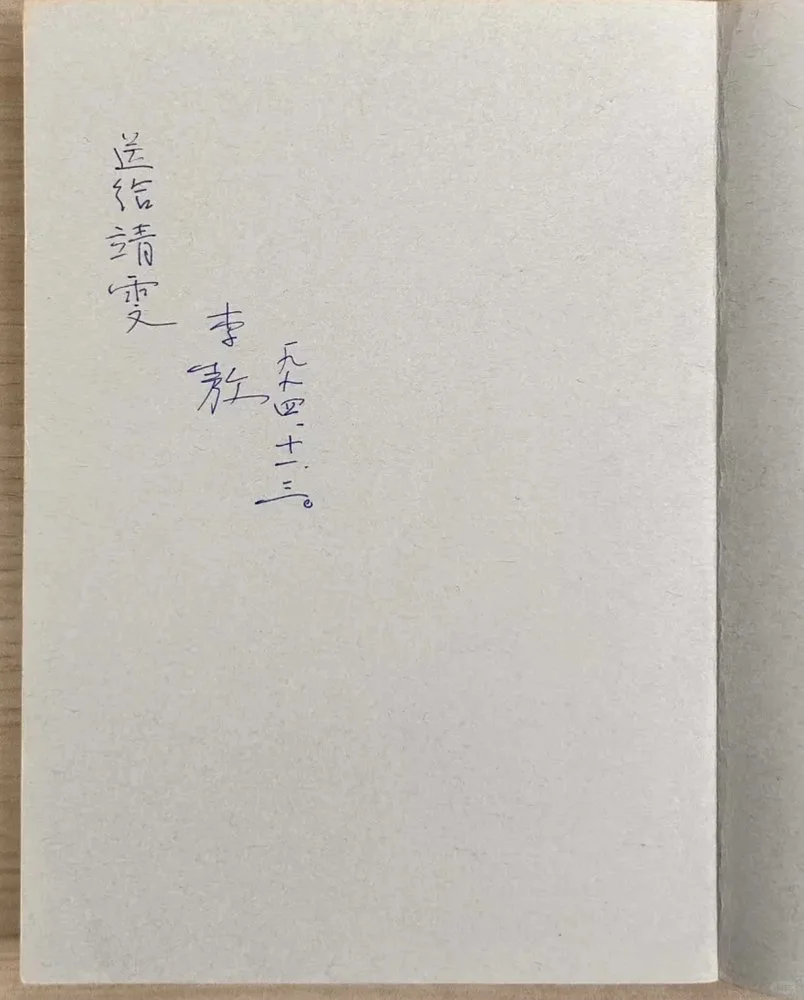 送给靖雯
李敖
一九八四.十一.三。